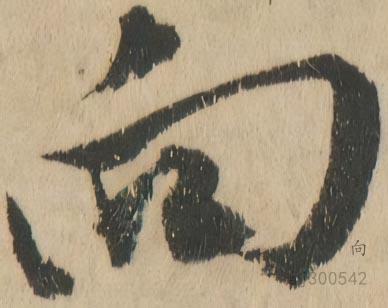 向
向
300542